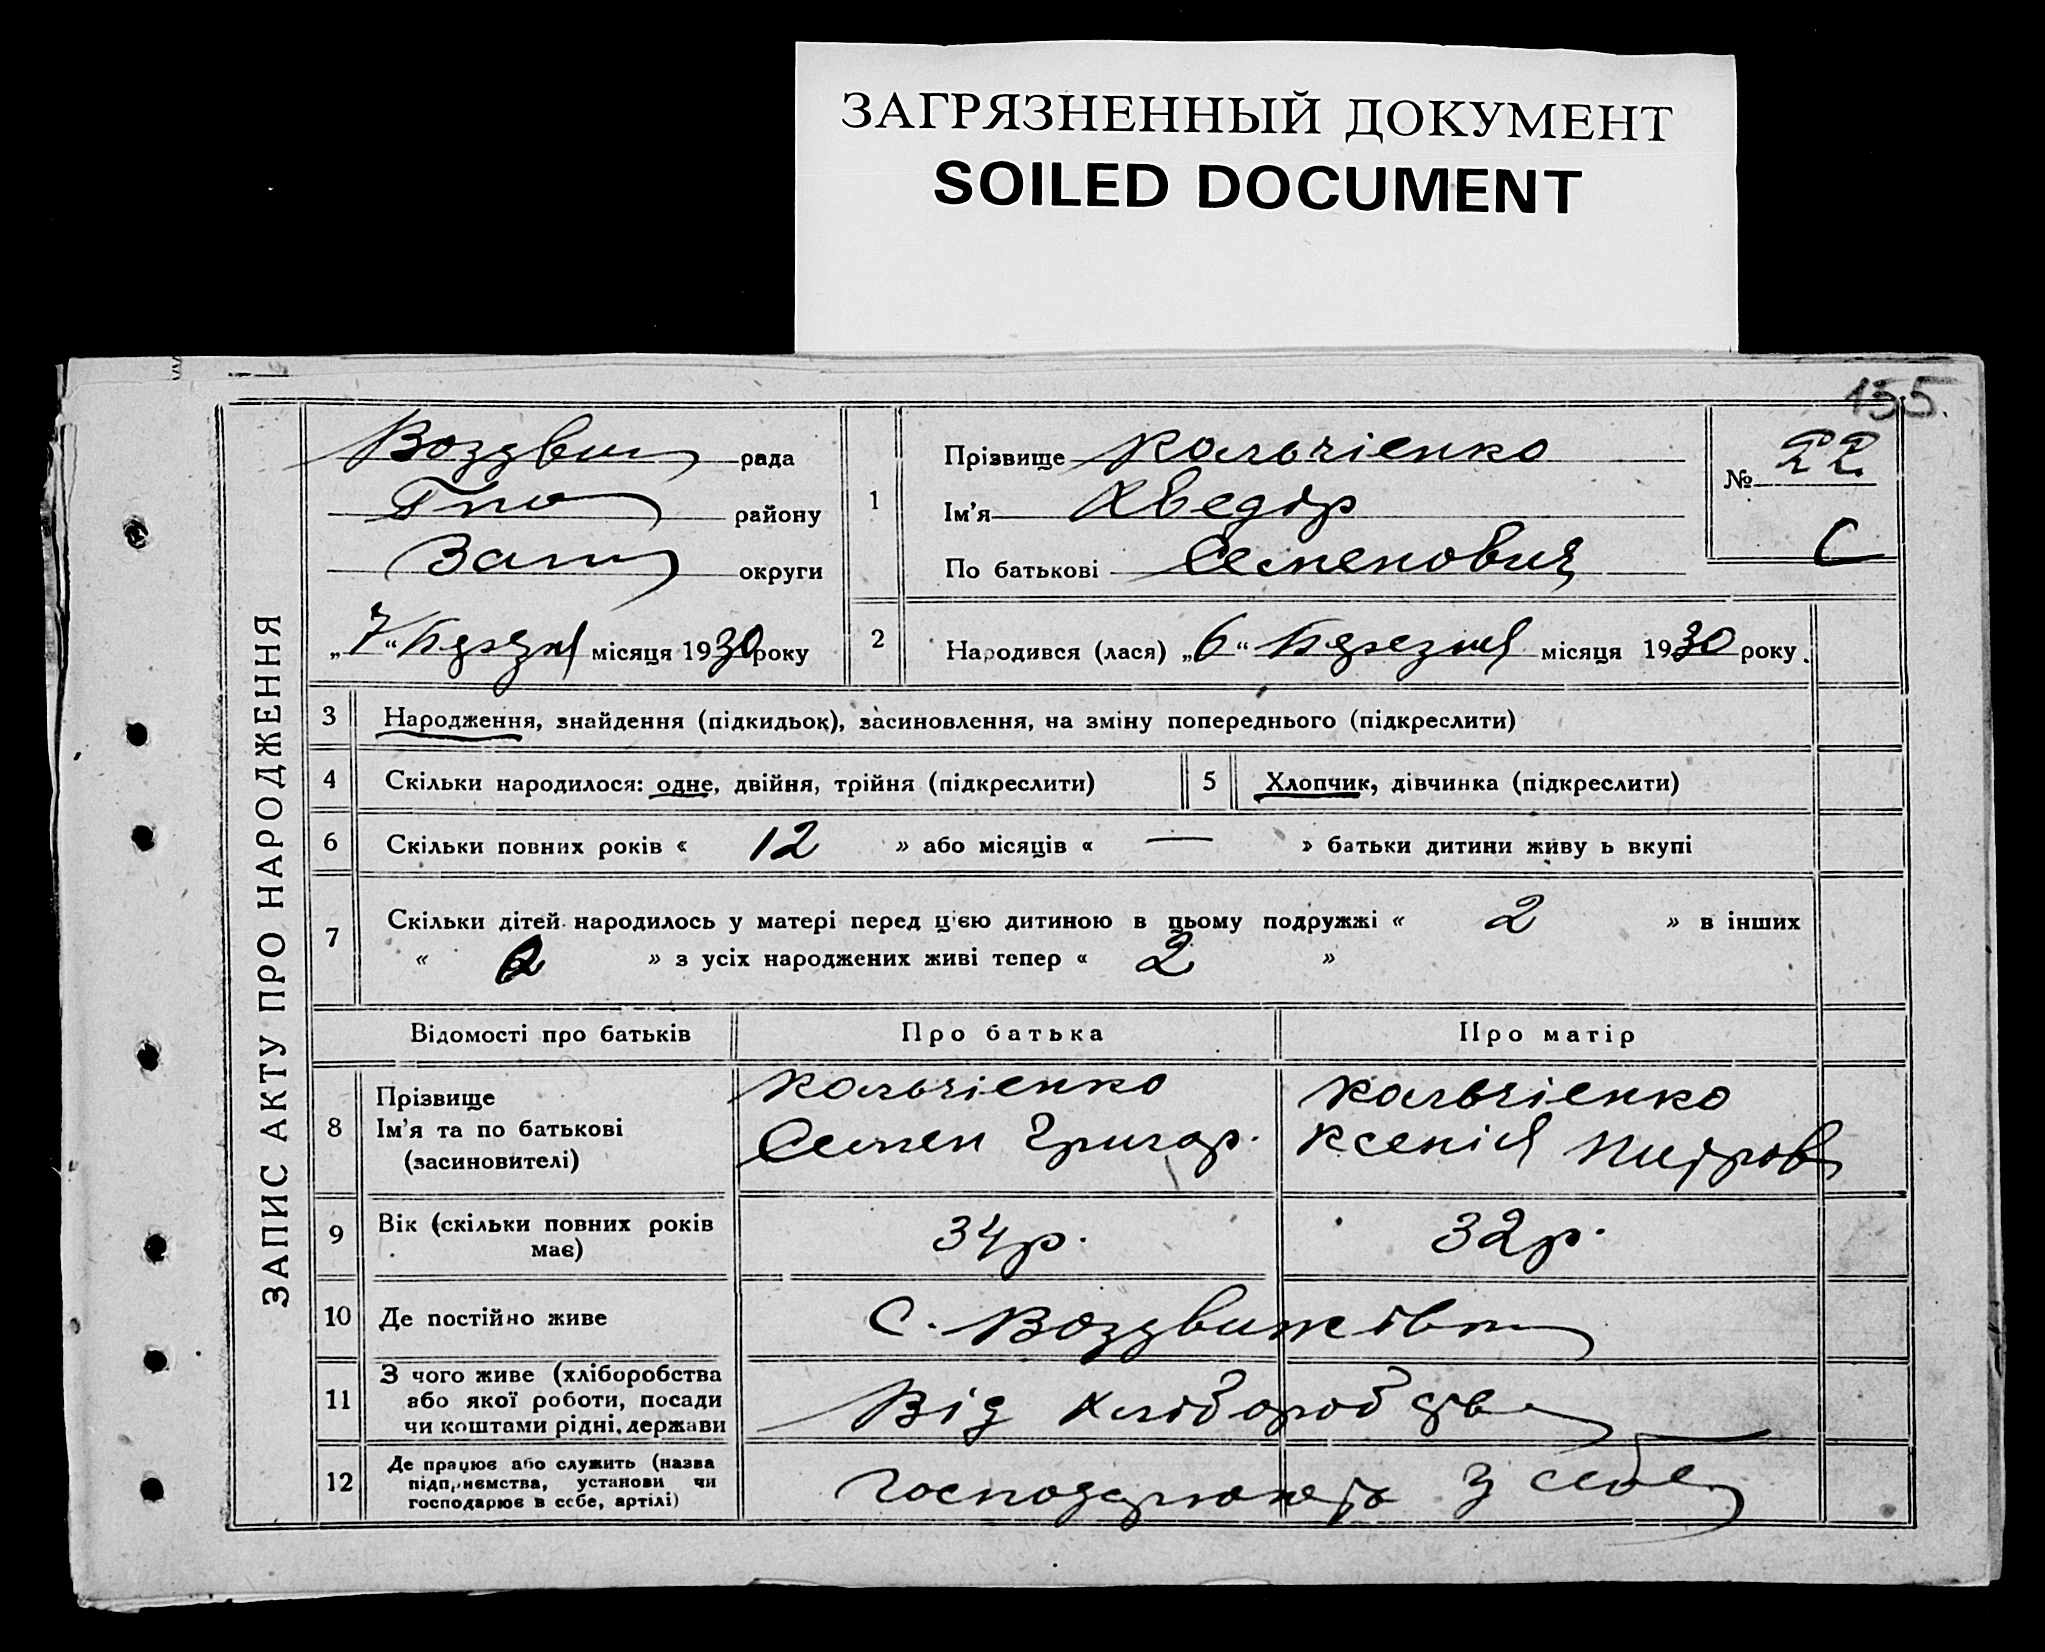 ЗАГРЯЗНЕННЫЙ ДОКУМЕНТ
SOILED DOCUMENT
155.
ЗАПИС АКТУ ПРО НАРОДЖЕННЯ
Воздвиж рада
району
Зап округи
„7“ Березня місяця 1930 року
1
Прізвище Кальчіенко
Ім'я Хведір
По батькові Семенович
№ 22
С
2 Народився (лася) „6“ Березня місяця 1930 року.
3 Народження, знайдення (підкидьок), засиновлення, на зміну попереднього (підкреслити)
4 Скільки народилося: одне, двійня, трійня (підкреслити) 5 Хлопчик, дівчинка (підкреслити)
6 Скільки повних років « 12 » або місяців « — » батьки дитини живу ь вкупі
7 Скільки дітей народилось у матері перед ц'єю дитиною в цьому подружжі « 2 » в інших
« » з усіх народжених живі тепер « 2 »
Відомості про батьків Про батька Про матір
8 Прізвище Кальчіенко Кальчіенко
Ім'я та по батькові Семен Григор. Ксенія
(засиновителі)
9 Вік (скільки повних років має) 34 р. 32 р.
10 Де постійно живе С. Воздвижівка
11 З чого живе (хліборобства
або якої роботи, посади
чи коштами рідні, держави
Від хліборобства
12 Де працює або служить (назва
підприємства, установи чи
господарює в себе, артілі)
господарюють з себе